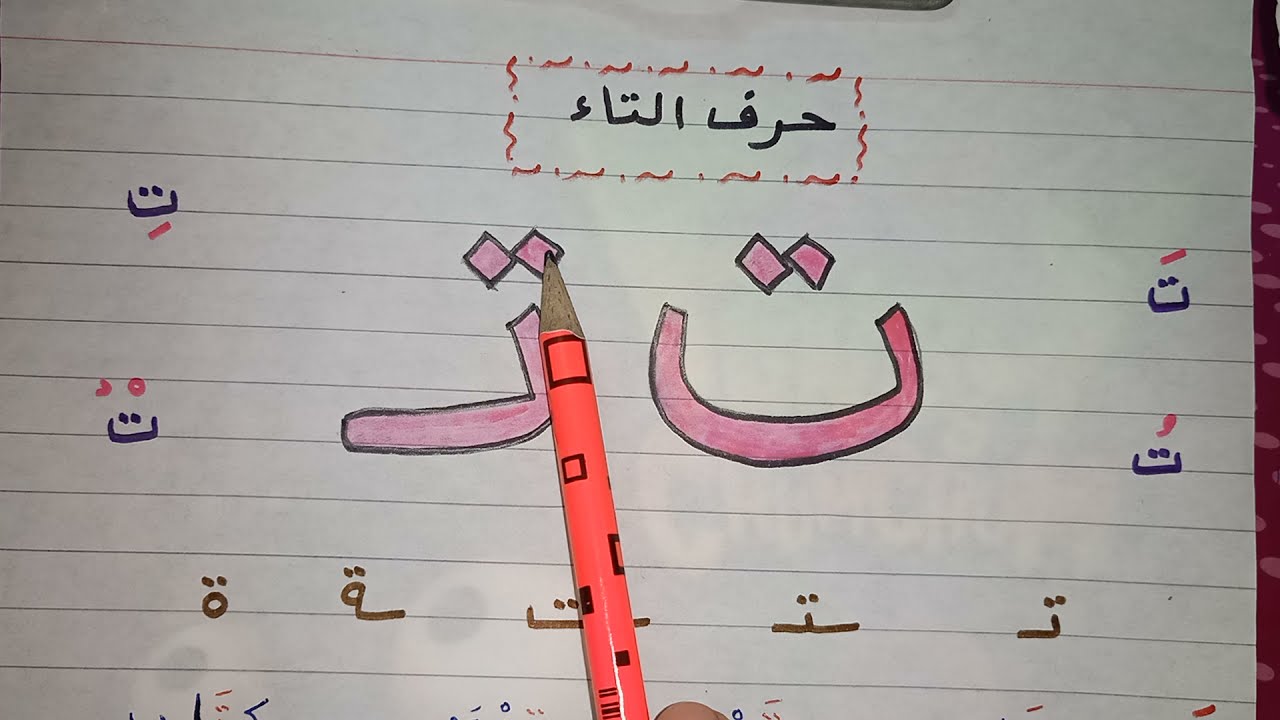 حرف التاء
تِ
ت تـ
تَ
تْ
تُ
تـ ـتـ ـت ـة ة